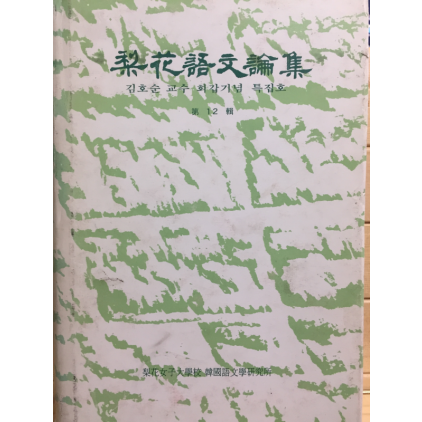 梨花語文論集
김호순 교수 회갑기념 특집호
第 12 輯
梨花女子大學校 韓國語文學硏究所